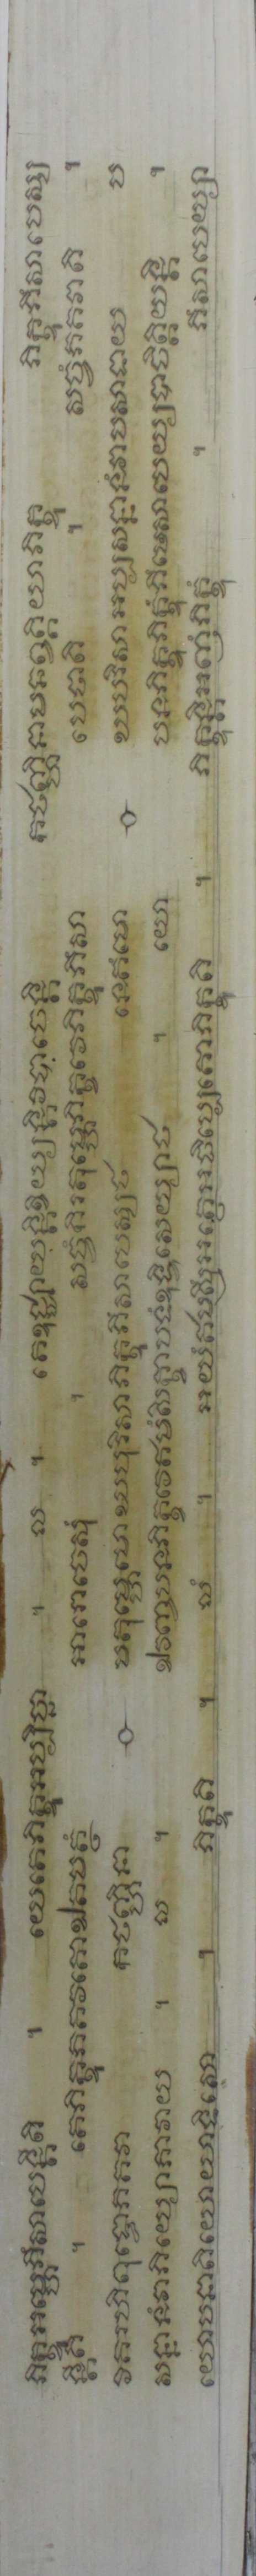 ភិក្ខូអម្ហេភឹសាបេន្តីតិ ។ យេតេភិក្ខូអប្បិច្ឆា ។ ល ។ តេឧជ្ឈាយន្តិខិយ្យន្តិវិបាចេន្តិ កថញ្ហិនាមឆព្វគ្គិយាភិក្ខូ ភិក្ខុំភឹសាបេស្ស
ន្តីតិ ។ តេភិក្ខូភគវតោឯតមត្ថំ អារោចេសុំ ។ សច្ចំកិរតុម្ហេភិក្ខវេភិក្ខូភឹសា បេថាតិ ។ សច្ចំភគវាតិ ។
វិគរហិពុទ្ធោភគវា កថញ្ហិនា មតុម្ហេមោឃបុរិសាភិក្ខូភឹសាបេស្សថ នេតំមោ ឃបុរិសាអប្បសន្នានំវាបសាទាយ ប
សន្នានំវាភិយ្យោភាវាយ ។ ល ។ ឯវញ្ចបនភិក្ខវេឥមំសិក្ខាបទំឧទ្ទិសេយ្យាថ ។ យោ បនភិក្ខុភិក្ខុំភឹសាបេយ្យបាចិត្តិយន្តិ ។
យោបនាតិយោយាទិសោ ។ ភិក្ខូតិ ។ ល ។ អយំឥមស្មឹអត្ថេអធិប្បេតោភិក្ខូតិ ។ ភិក្ខុន្តិអញ្ញំភិក្ខុំ ។ ភឹសាបេយ្យា